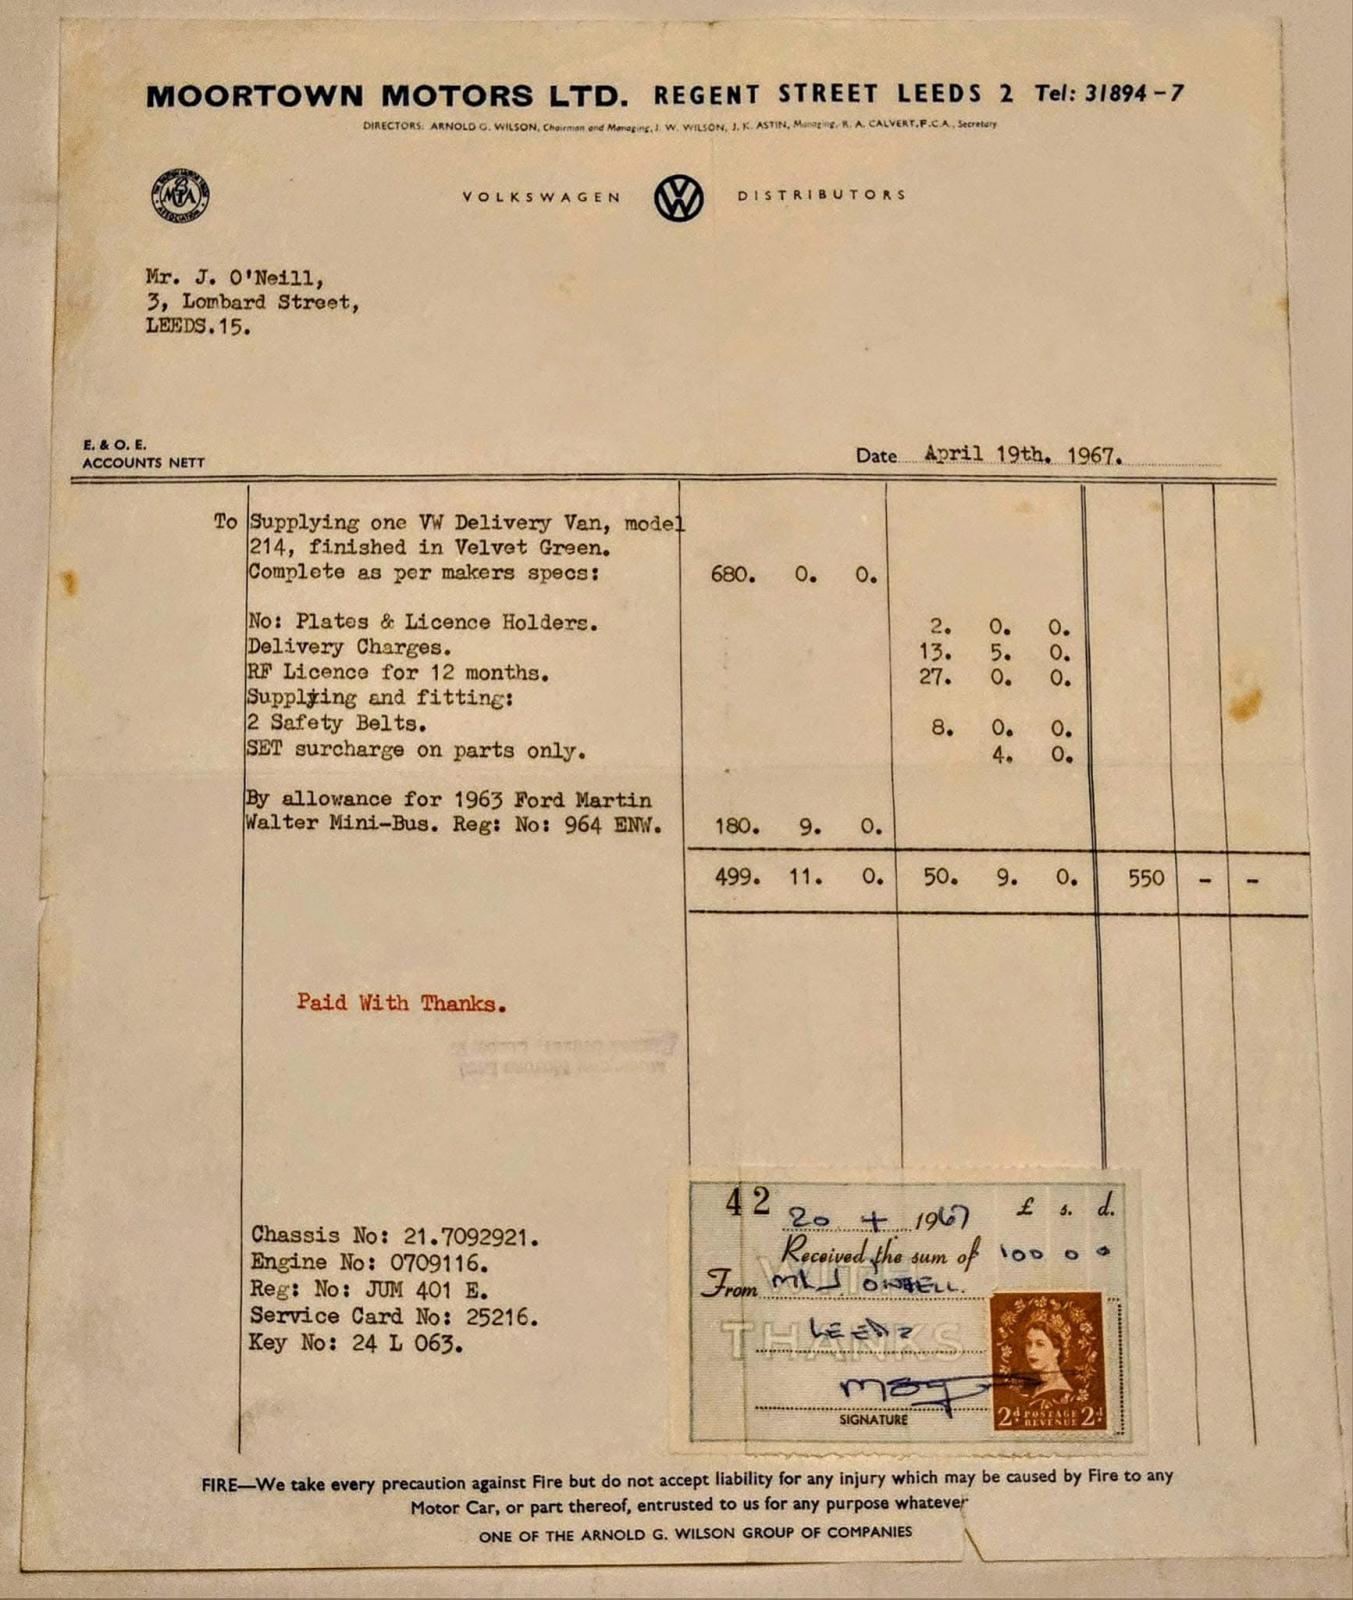 MOORTOWN MOTORS LTD. REGENT STREET LEEDS 2 Tel: 31894-7
DIRECTORS: ARNOLD G. WILSON, Chairman and Managing, J. W. WILSON, J. K. ASTIN, Managing, R. A. CALVERT, F.C.A., Secretary
VOLKSWAGEN VW DISTRIBUTORS
Mr. J. O'Neill,
3, Lombard Street,
LEEDS.15.
E. & O. E.
ACCOUNTS NETT
Date April 19th. 1967.
To Supplying one VW Delivery Van, model
214, finished in Velvet Green.
Complete as per makers specs: 680. 0. 0.
No: Plates & Licence Holders. 2. 0. 0.
Delivery Charges. 13. 5. 0.
RF Licence for 12 months. 27. 0. 0.
Supplying and fitting:
2 Safety Belts. 8. 0. 0.
SET surcharge on parts only. 4. 0.
By allowance for 1963 Ford Martin
Walter Mini-Bus. Reg: No: 964 ENW. 180. 9. 0.
499. 11. 0. 50. 9. 0. 550 - -
Paid With Thanks.
Chassis No: 21.7092921.
Engine No: 0709116.
Reg: No: JUM 401 E.
Service Card No: 25216.
Key No: 24 L 063.
42 20 4 1967 £ s. d.
Received the sum of 100 0 0
From MR J. ONEILL.
WITH
LEEDS
THANKS
SIGNATURE
2d POSTAGE REVENUE 2d
FIRE—We take every precaution against Fire but do not accept liability for any injury which may be caused by Fire to any
Motor Car, or part thereof, entrusted to us for any purpose whatever
ONE OF THE ARNOLD G. WILSON GROUP OF COMPANIES